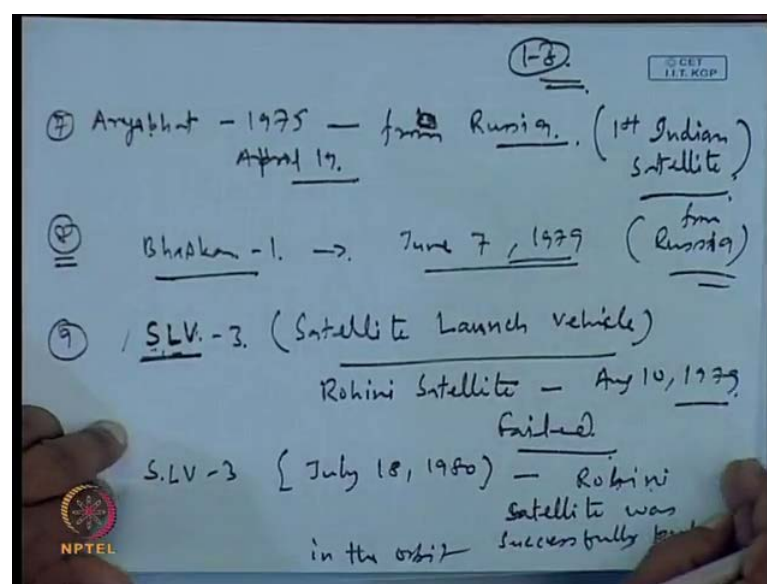 1-8.
© CET
I.I.T. KGP
⑦ Aryabhat - 1975 - from Russia. (1st Indian Satellite)
April 19.
⑧ Bhaskar - 1. → June 7, 1979 (from Russia)
⑨ SLV - 3. (Satellite Launch vehicle)
Rohini Satellite - Aug 10, 1979
Failed.
S.LV - 3 {July 18, 1980) - Rohini
satellite was
in the orbit successfully
NPTEL